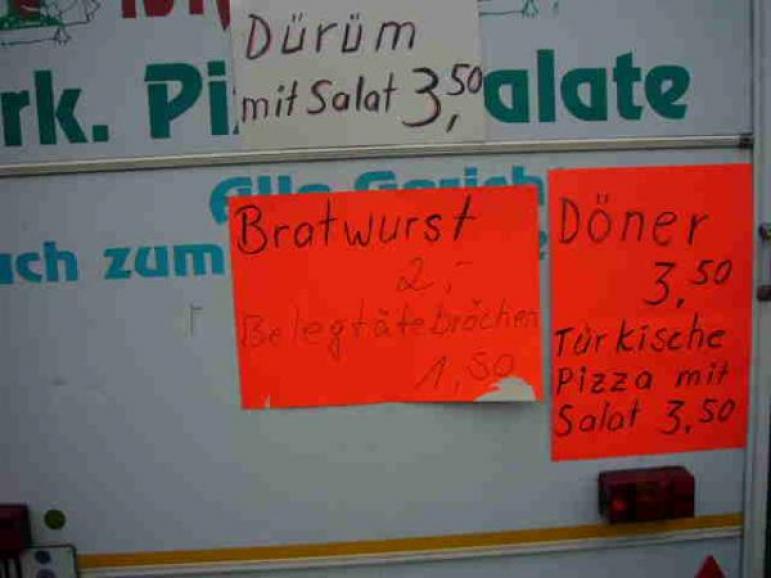 Dürüm
mit Salat 3,50
rk. Pi alate
Bratwurst
2,-
Belegtätebröchen
1,50
Döner
3,50
Türkische
Pizza mit
Salat 3,50
ich zum